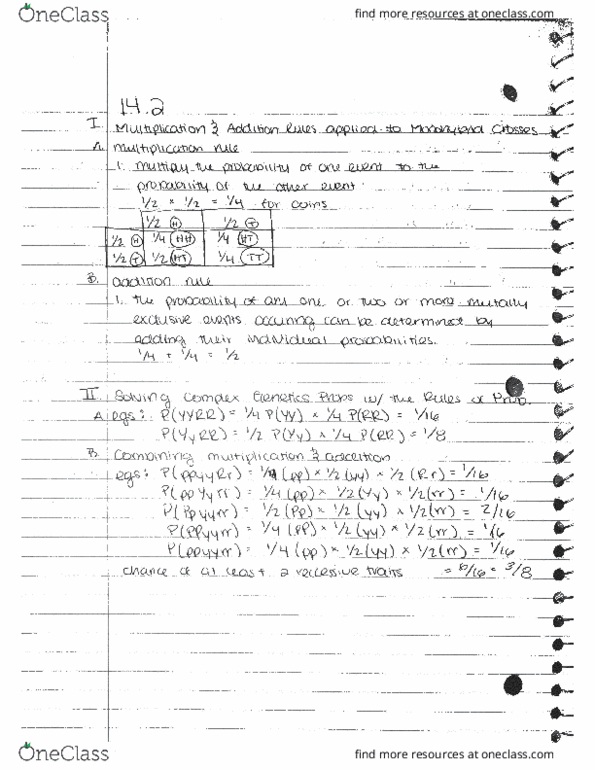 OneClass
find more resources at oneclass.com
14.2
I. Multiplication & Addition Rules applied to Monohybrid Crosses
A. multiplication rule
1. multiply the probability of one event to the
probability of the other event.
1/2 × 1/2 = 1/4 for coins
1/2 H 1/2 T
1/2 H 1/4 HH 1/4 HT
1/2 T 1/2 HT 1/4 TT
B. addition rule
1. the probability of any one or two or more mutually
exclusive events occuring can be determined by
adding their individual probabilities.
1/4 + 1/4 = 1/2
II Solving Complex Genetics Probs w/ the Rules of Prob.
A. egs: P(YYRR) = 1/4 P(YY) × 1/4 P(RR) = 1/16
P(YyRR) = 1/2 P(Yy) × 1/4 P(RR) = 1/8
B. Combining multiplication & addition
egs: P(ppyyRr) = 1/4 (pp) × 1/2 (yy) × 1/2 (Rr) = 1/16
P(ppYyrr) = 1/4 (pp) × 1/2 (Yy) × 1/2 (rr) = 1/16
P(Ppyyrr) = 1/2 (Pp) × 1/2 (yy) × 1/2 (rr) = 2/16
P(PPyyrr) = 1/4 (PP) × 1/2 (yy) × 1/2 (rr) = 1/16
P(ppyyrr) = 1/4 (pp) × 1/2 (yy) × 1/2 (rr) = 1/16
chance of at least 2 reccessive traits = 6/16 = 3/8
OneClass
find more resources at oneclass.com